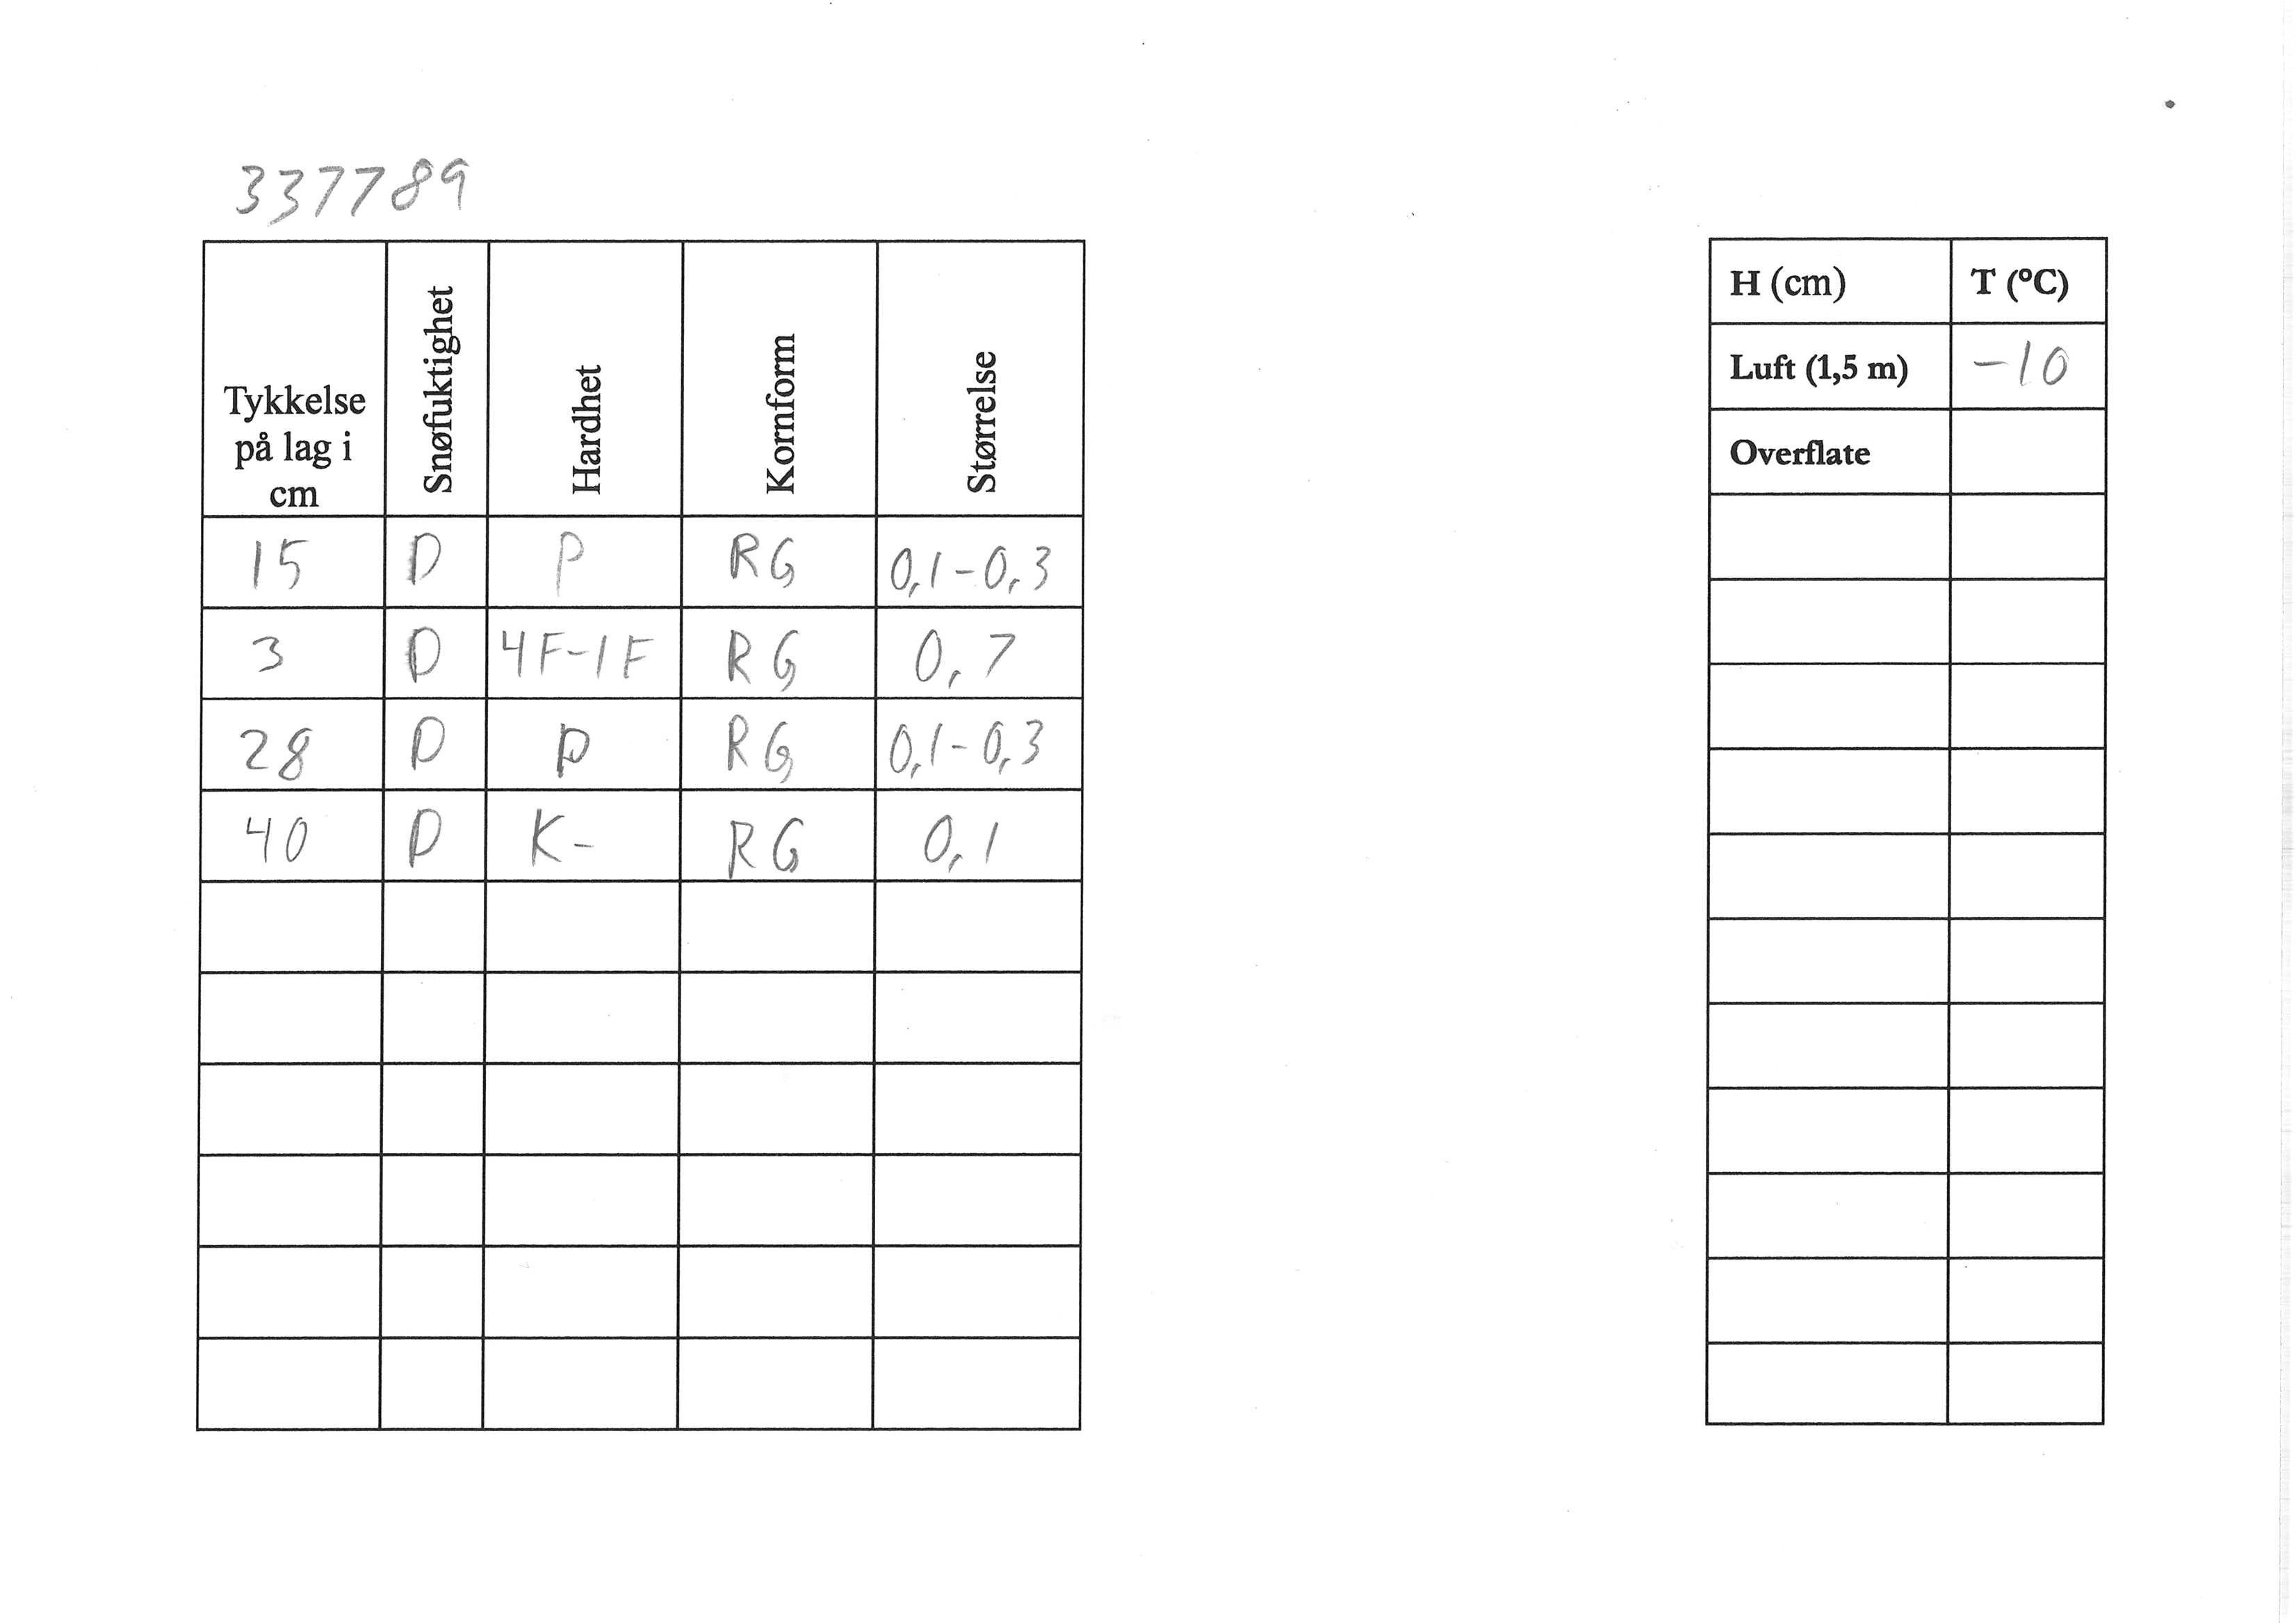 337789
Tykkelse på lag i cm Snøfuktighet Hardhet Kornform Størrelse
15 D P RG 0,1-0,3
3 D 4F-1F RG 0,7
28 D P RG 0,1-0,3
40 D K- RG 0,1
H (cm) T (°C)
Luft (1,5 m) -10
Overflate